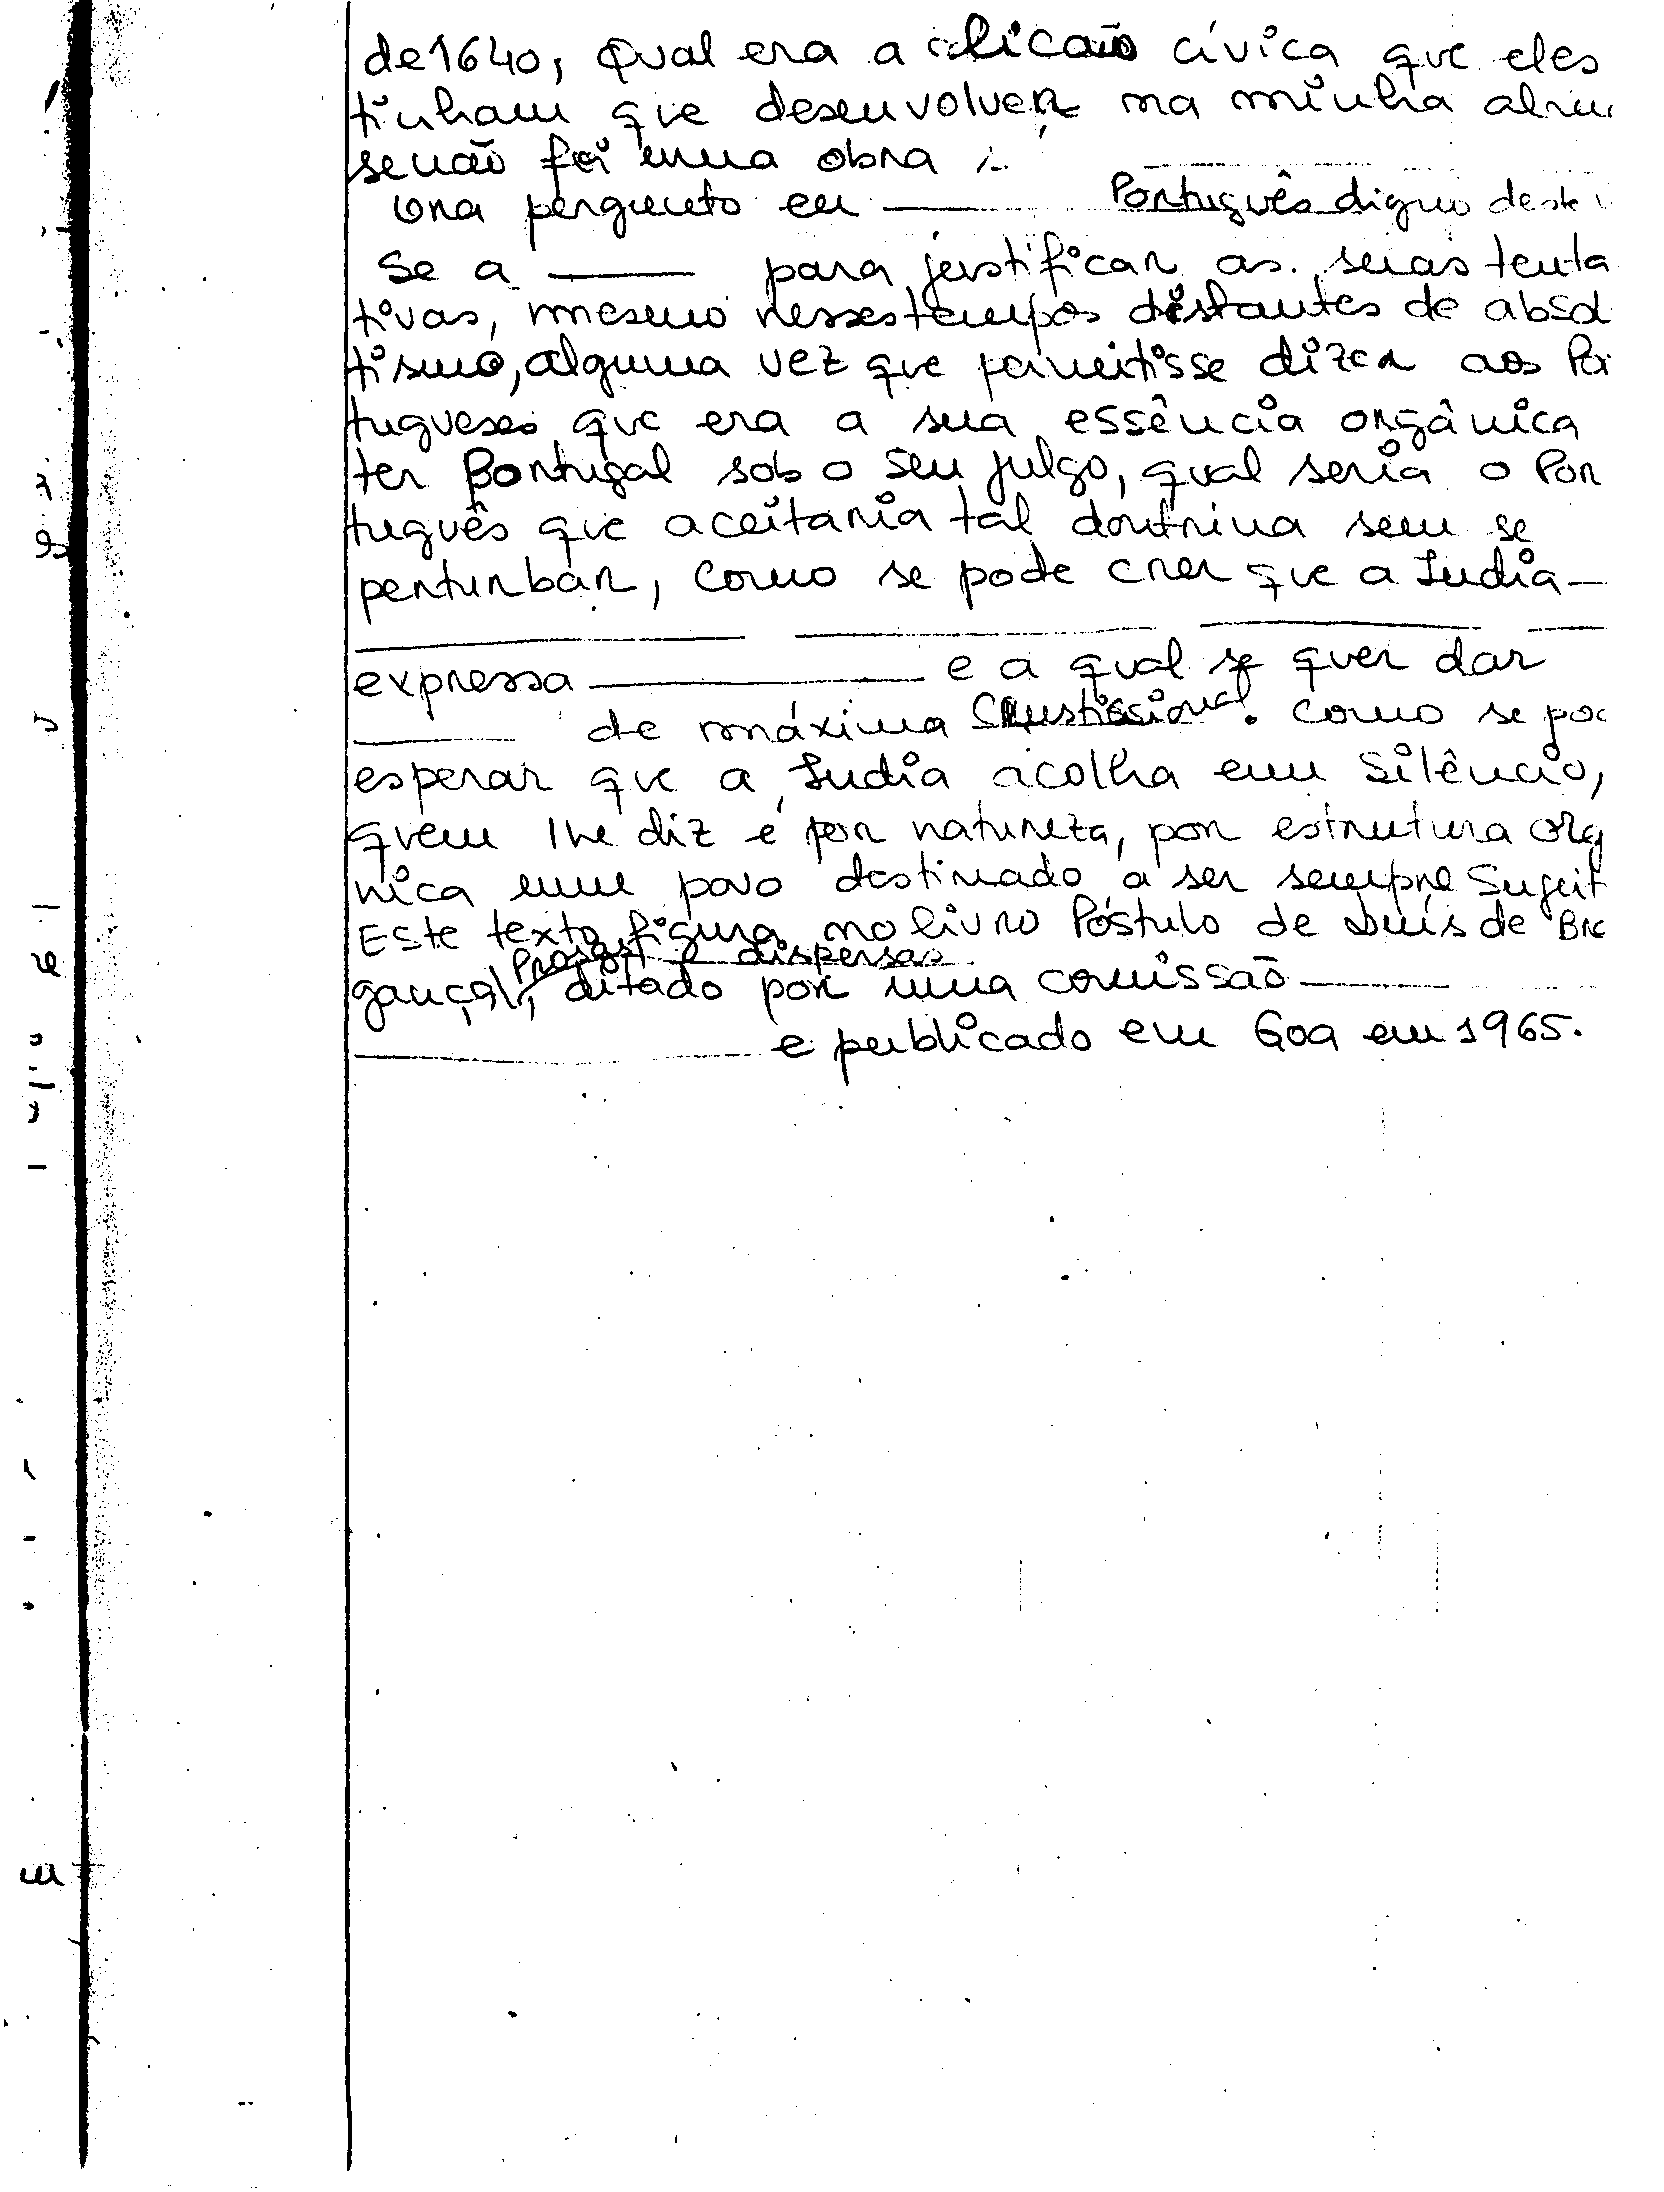 de 1640, Qual era a licão cívica que eles
tinham que desenvolver na minha
senão foi numa obra
Ora pergunto eu ——— Português digno deste
Se a ——— para justificar as suas tenta
tivas, mesmo nesses tempos distantes de absol
tismo, alguma vez que permitisse dizer aos Por
tugueses que era a sua essência orgânica
ter Portugal sob o seu julgo, qual seria o Por
tuguês que aceitaria tal doutrina sem se
perturbar, como se pode crer que a India —
expressa ——— e a qual se quer dar
——— de máxima. Como se po
esperar que a India acolha em silêncio,
quem lhe diz é por natureza, por estrutura org
nica num povo destinado a ser sempre Sugeit
Este texto figura no livro Póstulo de Luís de Bra
Prosas e dispersas
gança, ditado por uma comissão ———
——— e publicado em Goa em 1965.